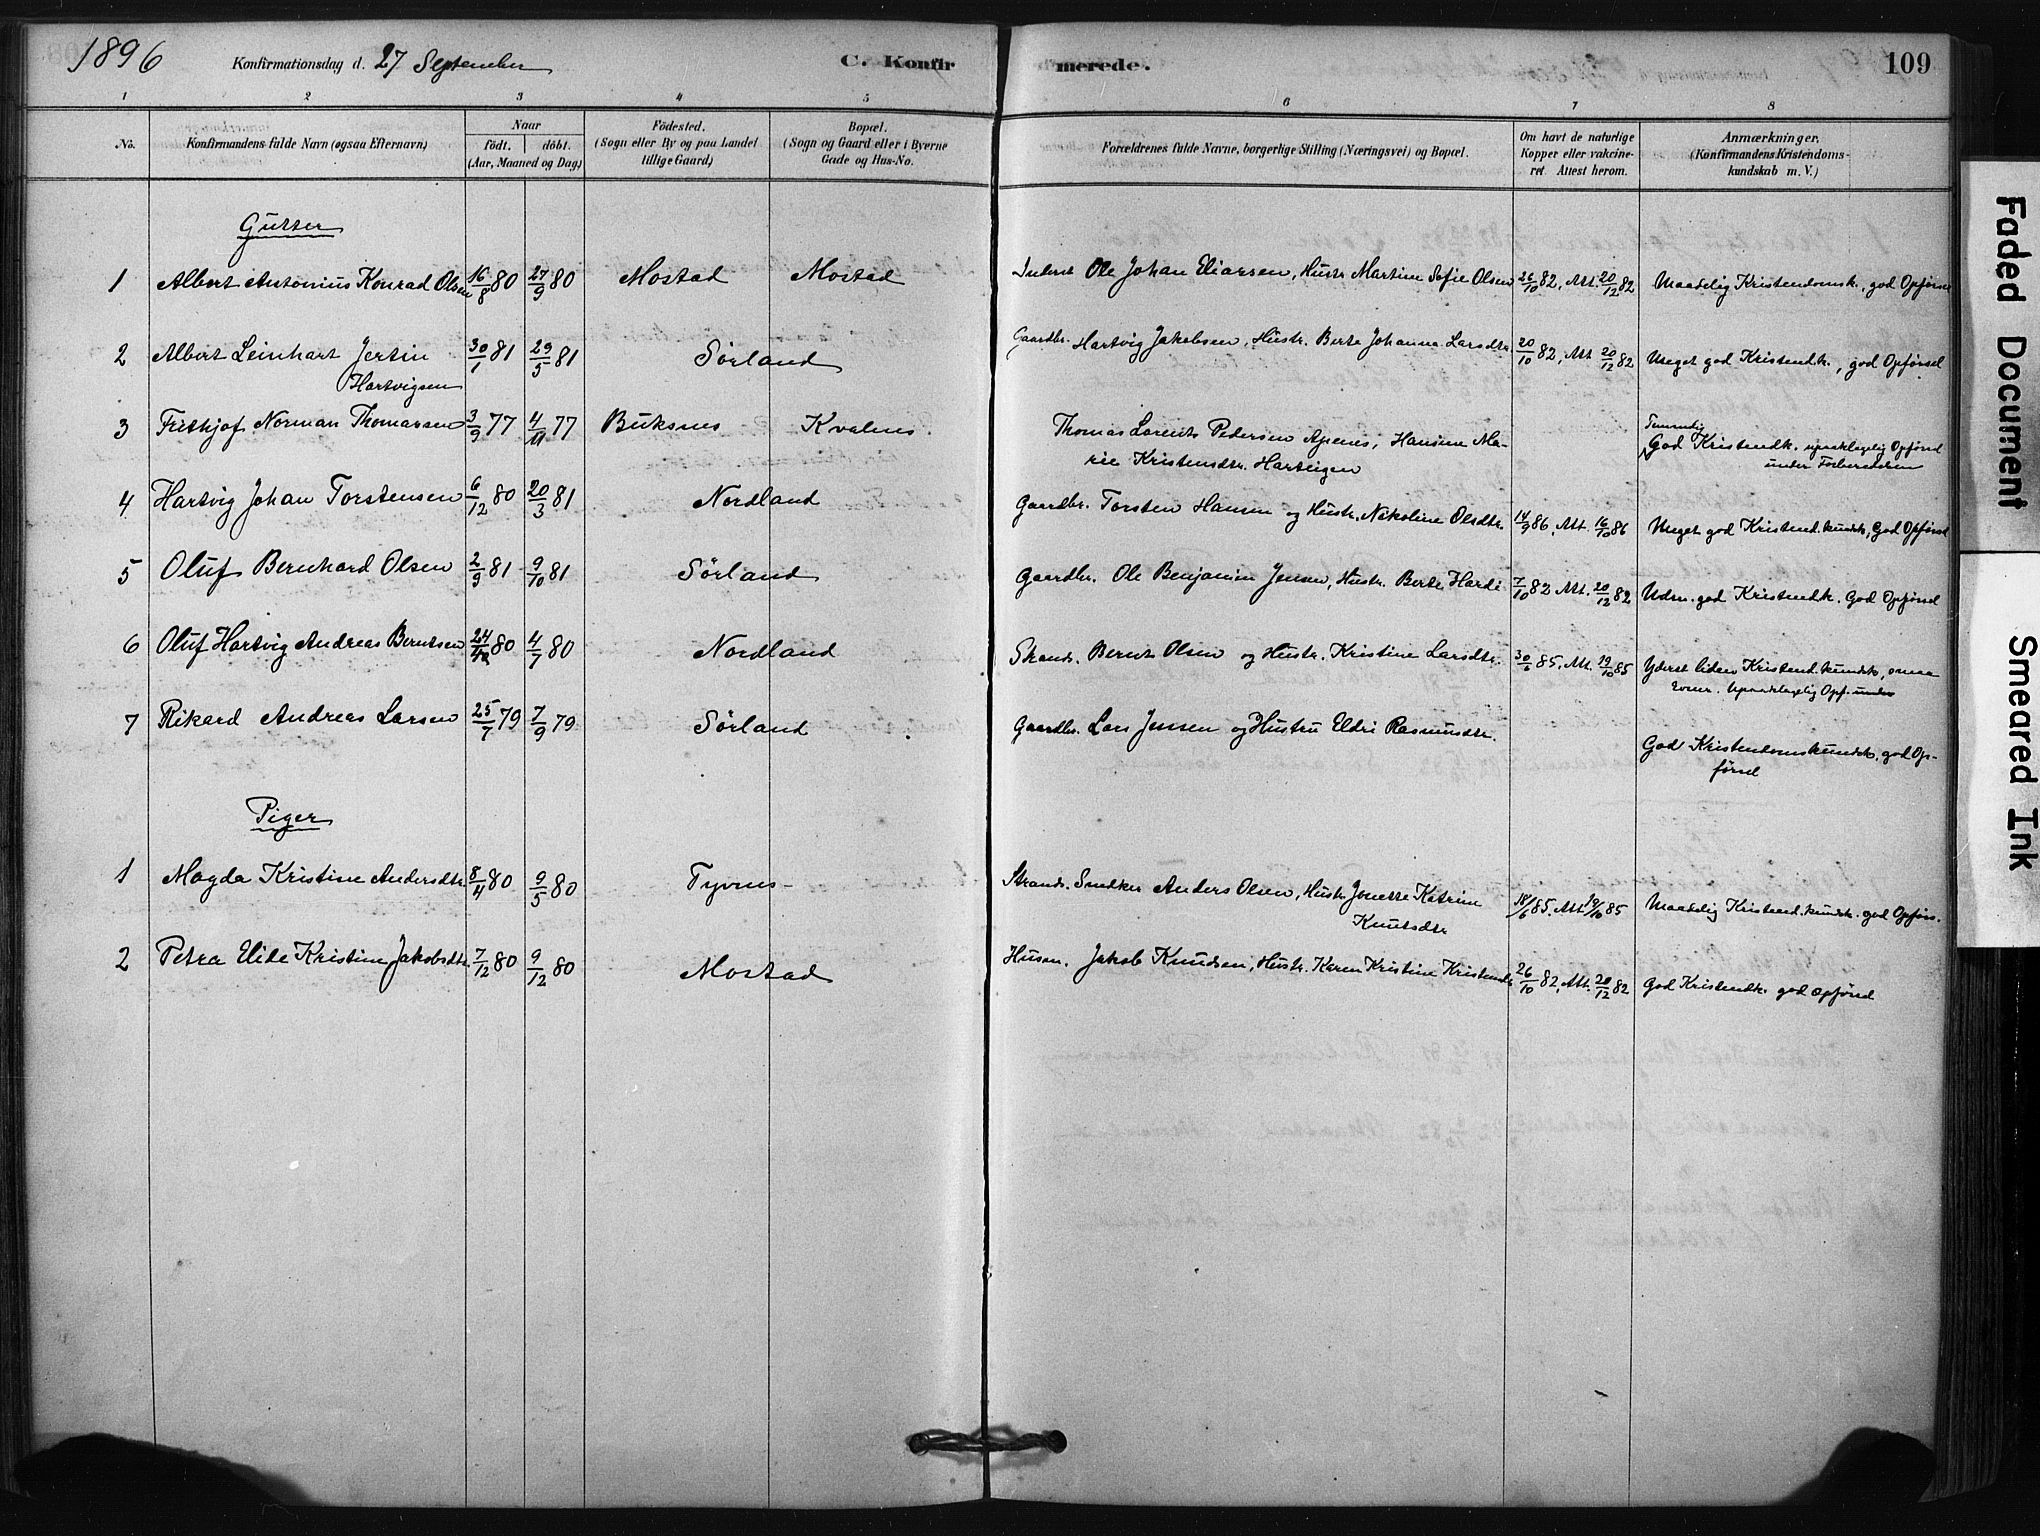 1896 Konfirmationsdag d. 27 September C. Konfirmerede. 109
1 2 3 4 5 6 7 8
No. Konfirmandens fulde Navn (ogsaa Efternavn) Naar födt. döbt. (Aar, Maaned og Dag) Födested. (Sogn eller By og paa Landet tillige Gaard) Bopæl. (Sogn og Gaard eller i Byerne Gade og Hus-No. Forældrenes fulde Navne, borgerlige Stilling (Næringsvei) og Bopæl. Om havt de naturlige Kopper eller vakcineret. Attest herom. Anmærkninger. (Konfirmandens Kristendomskundskab m. V.)
Gutter
1 Albert Antonius Konrad Olsen 16/8 80 27/9 80 Mostad Mostad Inderst Ole Johan Eliassen, Hustr. Martine Sofie Olsen 26/10 82, Att. 20/12 82 Maadelig Kristendomsk., god Opførsel
2 Albert Leinhart Jertin 30/1 81 29/5 81 Sørland Gaardbr. Hartvig Jakobsen, Hustr. Berte Johanna Larsdtr 20/10 82, Att 20/12 82 Meget god Kristendk., god Opførsel
Hartvigsen
3 Frithjof Norman Thomassen 3/9 77 4/11 77 Buksnes Kvalnes. Thomas Lorents Pedersen Apenes, Hansine Ma-
rie Kristensdtr. Harteigen
Temmelig
God Kristendk. upaaklagelig Opførsel
under Forberedelsen
4 Hartvig Johan Torstensen 6/12 80 20/3 81 Nordland Gaardbr. Torsten Hansen og Hustr. Nikoline Olsdtr. 14/9 86, Att. 16/10 86 Meget god Kristend.kundsk, God Opførsel
5 Oluf Bernhard Olsen 2/9 81 9/10 81 Sørland Gaardbr. Ole Benjamin Jensen, Hustr. Berte Hardi 7/10 82 Att. 20/12 82 Udm. god Kristendk. God Opførsel
6 Oluf Hartvig Andreas Berntsen 24/4 80 4/7 80 Nordland Strands. Bernt Olsen og Hustr. Kristine Larsdtr. 30/6 85, Att. 19/10 85 Yderst liden Kristend.kundsk, smaa
Evner. Upaaklagelig Opf. under
7 Rikard Andreas Larsen 25/7 79 7/9 79 Sørland Gaardbr. Lars Jensen og Hustru Eldri Rasmusdtr.
God Kristendomskundsk, god Op-
førsel
Piger
1 Magda Kristine Andersdtr. 8/4 80 9/5 80 Tyvnes Strands. Snedker Anders Olsen, Hustr. Jenette Katrine
Knutsdtr
18/6 85, Att. 19/10 85 Maadelig Kristend.kundsk. god Opførs.
2 Petra Elide Kristine Jakobsdtr. 7/12 80 9/12 80 Mostad Husm. Jakob Knudsen, Hustr. Karen Kristine Kristensdtr 26/10 82, Att. 20/12 82 God Kristendk. god Opførsel
Faded Document
Smeared Ink